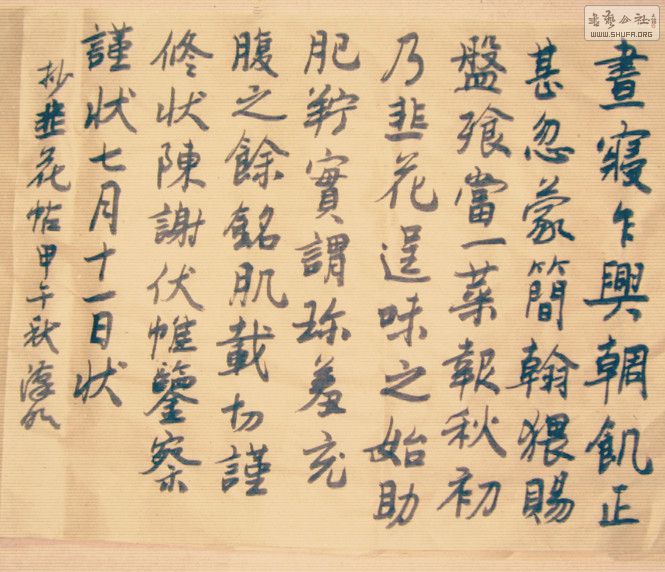 晝寢乍興輖飢正
甚忽蒙簡翰猥賜
盤飧當一葉報秋初
乃韭花逞味之始助
肥羜實謂珍羞充
腹之餘銘肌載切謹
修状陳謝伏惟鑒察
謹状七月十一日状
抄韭花帖甲午秋
WWW.SHUFA.ORG